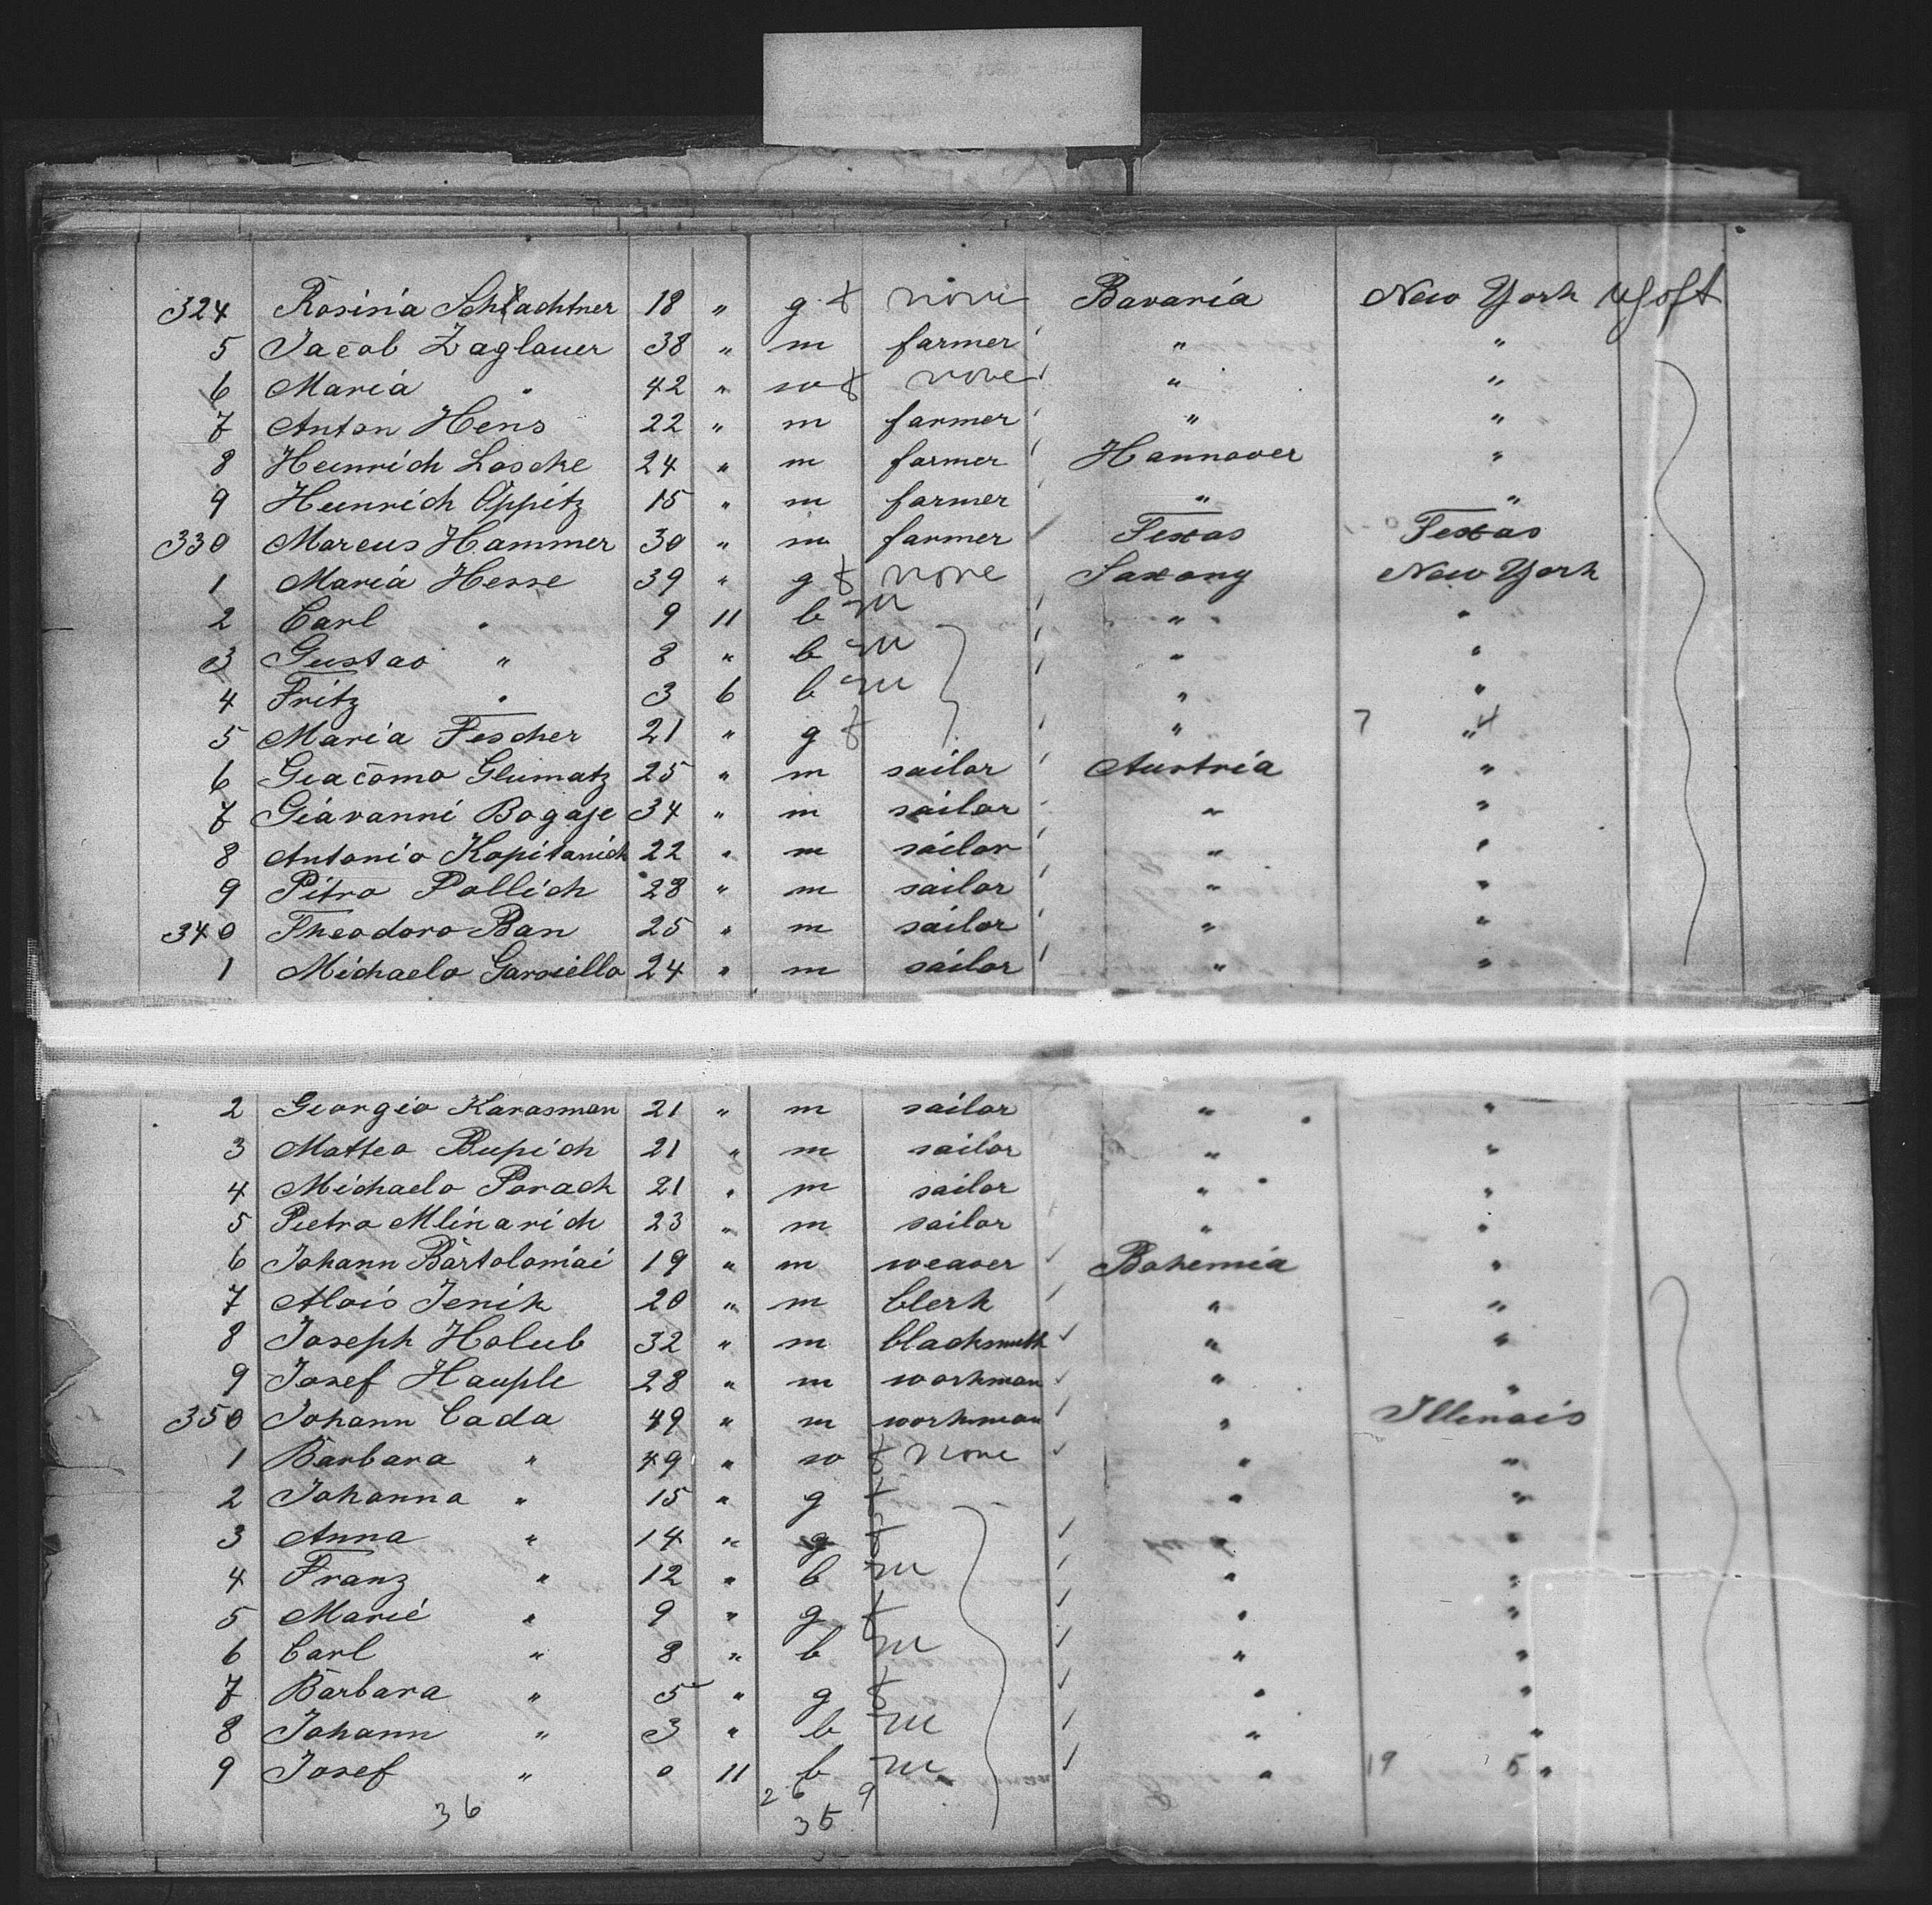 324 Rosina Schlachtner 18 " g f none Bavaria New York
5 Jacob Zaglauer 38 " m farmer " "
6 Maria " 42 " w f none " "
7 Anton Hens 22 " m farmer " "
8 Heinrich Loscke 24 " m farmer Hannover "
9 Heinrich Appitz 15 " m farmer " "
330 Marcus Hammer 30 " m farmer Texas Texas
1 Maria Hesse 39 " g f none Saxony New York
2 Carl " 9 11 b m " "
3 Gustav " 8 " b m " "
4 Fritz " 3 6 b m " "
5 Maria Fischer 21 " g f " 7 " 4
6 Giacomo Glumatz 25 " m sailor Austria "
7 Giavanni Bogaje 34 " m sailor " "
8 Antonio Kapitanich 22 " m sailor " "
9 Pitro Pollich 28 " m sailor " "
340 Theodoro Ban 25 " m sailor " "
1 Michaelo Garsiello 24 " m sailor " "
2 Georgio Karasman 21 " m sailor " "
3 Matteo Bupich 21 " m sailor " "
4 Michaelo Porach 21 " m sailor " "
5 Pietro Mlinarich 23 " m sailor " "
6 Johann Bartolomäi 19 " m weaver Bohemia "
7 Alois Jenik 20 " m clerk " "
8 Joseph Holub 32 " m blacksmith " "
9 Josef Hauple 28 " m workman " "
350 Johann Cada 49 " m workman " Illinois
1 Barbara " 49 " w f none " "
2 Johanna " 15 " g f " "
3 Anna " 14 " g f " "
4 Franz " 12 " b m " "
5 Marie " 9 " g f " "
6 Carl " 8 " b m " "
7 Barbara " 5 " g f " "
8 Johann " 3 " b m " "
9 Josef " 0 11 b m " 19 5 "
36 26 9
35